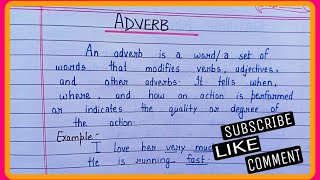 ADVERB
An adverb is a word/a set of
words that modifies verbs, adjectives,
and other adverbs. It tells when,
where, and how an action is performed
or indicates the quality or degree of
the action.
Example:-
I love her very much
He is running fast.
SUBSCRIBE
LIKE
COMMENT